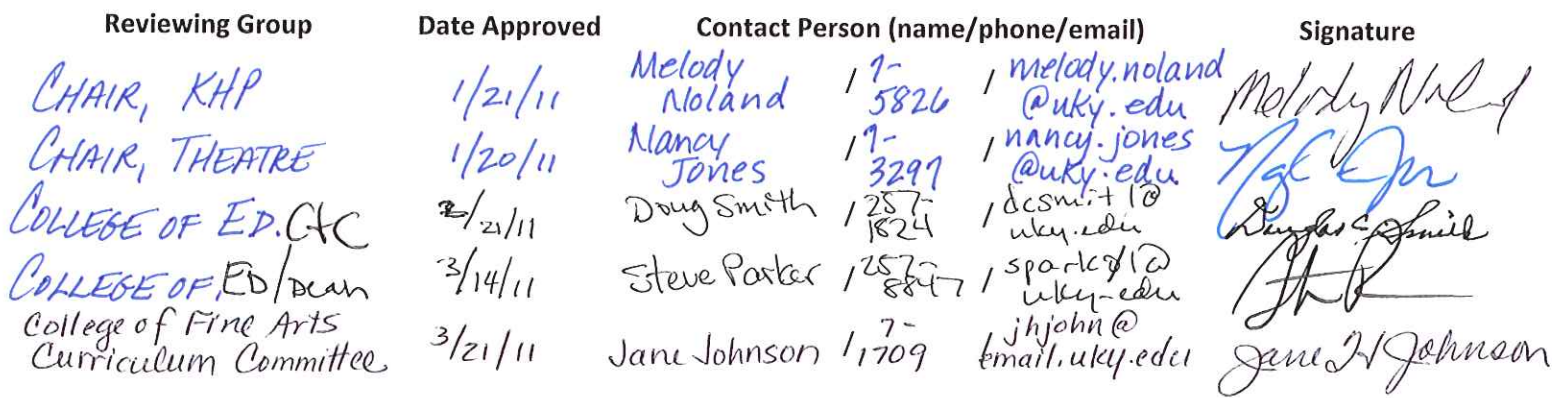 Reviewing Group Date Approved Contact Person (name/phone/email) Signature
CHAIR, KHP 1/21/11 Melody Noland / 7-5826 / melody.noland@uky.edu Melody Noland
CHAIR, THEATRE 1/20/11 Nancy Jones / 7-3297 / nancy.jones@uky.edu
COLLEGE OF ED. C+C 2/21/11 Doug Smith / 257-1824 / dcsmit1@uky.edu Douglas C. Smith
COLLEGE OF ED/Dean 3/14/11 Steve Parker / 257-8847 /
College of Fine Arts Curriculum Committee 3/21/11 Jane Johnson / 7-1709 jhjohn@email.uky.edu Jane H Johnson